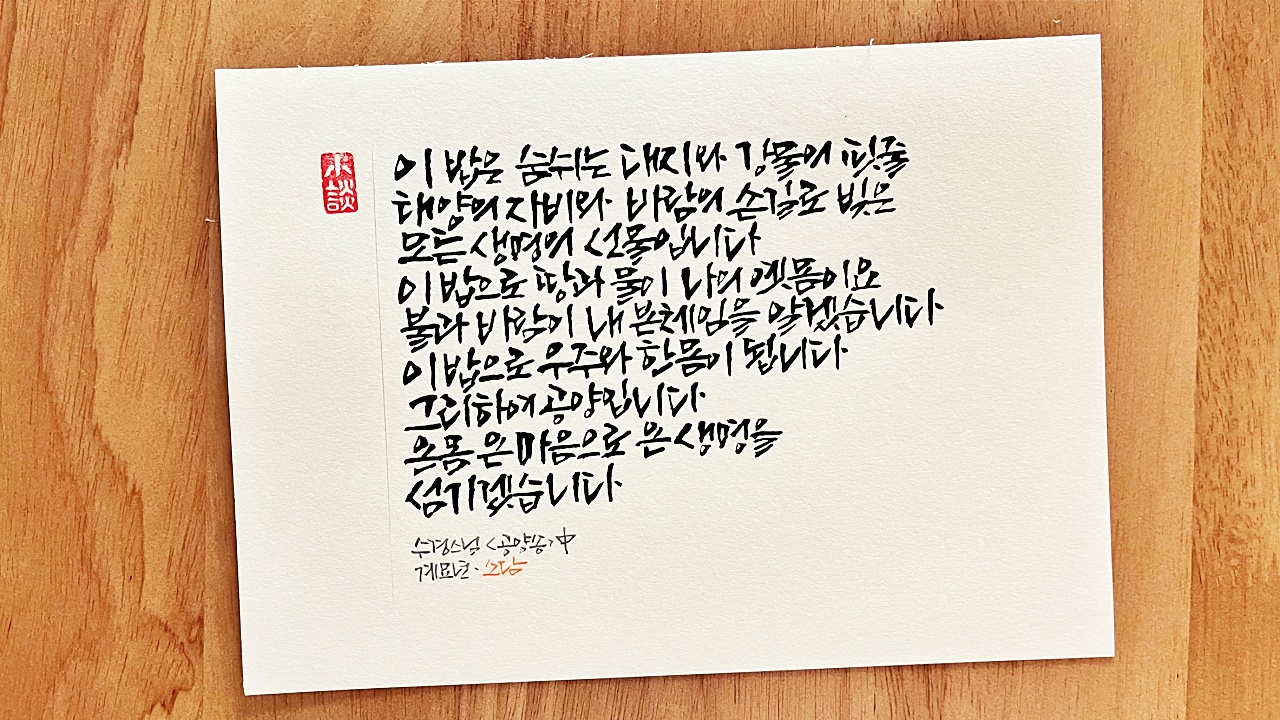 이 밥은 숨쉬는 대지와 강물의 핏줄
태양의 자비와 바람의 손길로 빚은
모든 생명의 선물입니다
이 밥으로 땅과 물이 나의 옛몸이요
불과 바람이 내 본체임을 알겠습니다
이 밥으로 우주와 한몸이 됩니다
그리하여 공양입니다
온몸 온 마음으로 온 생명을
섬기겠습니다
수경스님 <공양송> 中
계묘년·소담